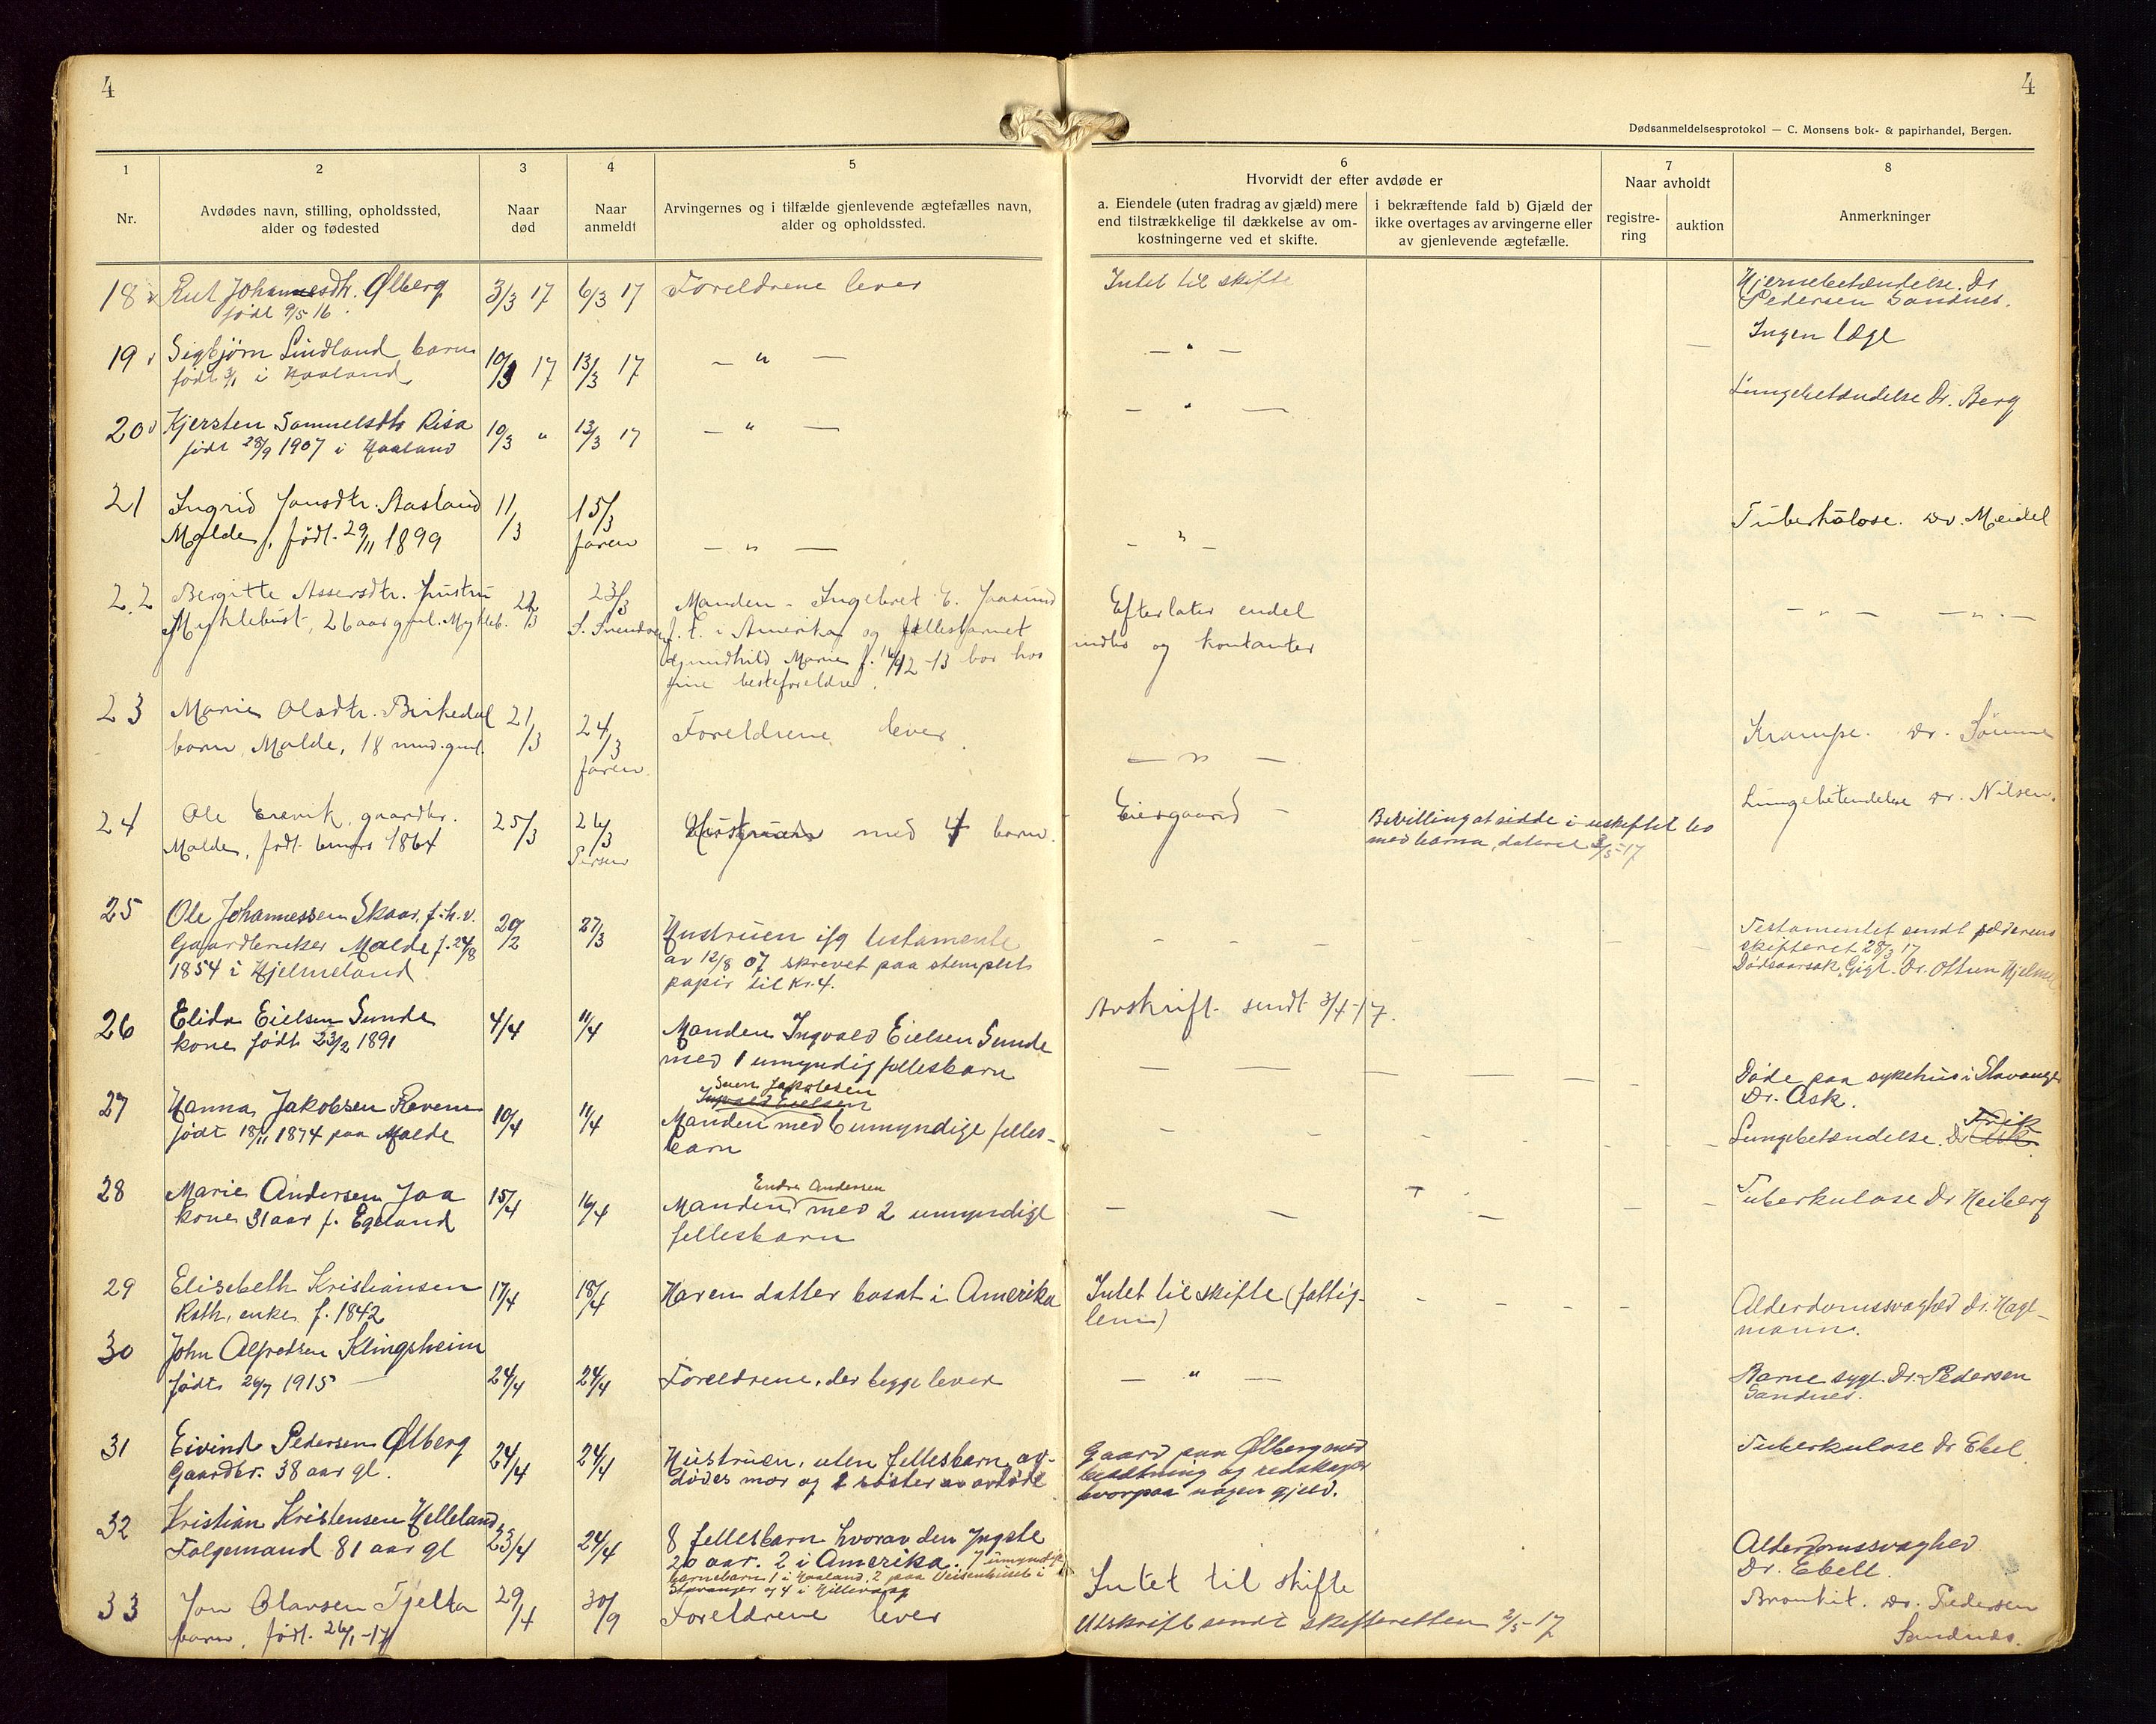 4
4
Dødsanmeldelsesprotokol — C. Monsens bok- & papirhandel, Bergen.
1
2
3
4
5
6
7
8
Nr.
Avdødes navn, stilling, opholdssted,
alder og fødested
Naar
død
Naar
anmeldt
Arvingernes og i tilfælde gjenlevende ægtefælles navn,
alder og opholdssted.
Hvorvidt der efter avdøde er
a. Eiendele (uten fradrag av gjæld) mere
end tilstrækkelige til dækkelse av om-
kostningerne ved et skifte.
i bekræftende fald b) Gjæld der
ikke overtages av arvingerne eller
av gjenlevende ægtefælle.
Naar avholdt
registre-
ring
auktion
Anmerkninger
18 Rut Johannesdtr. Ølberg 3/3 17 6/3 17 Foreldrene lever Intet til skifte Hjernebetændelse. Dr
født 9/5 16 Pedersen Sandnes.
19 Sigbjørn Lindland, barn 10/3 17 13/3 17 — " — — " — Ingen læge
født 3/1 i Haaland
20 Kjersten Samuelsdtr Risa 10/3 " 13/3 17 — " — — " — Lungebetændelse Dr. Berg
født 28/9 1907 i Haaland
21 Ingrid Jonsdtr. Aasland 11/3 15/3 — " — — " — Tuberkulose. Dr. Meidel
Malde, født. 29/11 1899 faren
22 Bergitte Assersdtr. hustru 23/3 Manden - Ingebret E. Jaasund Efterlater endel — " — — " —
Myklebust, 26 aar gml. Mykleb. f. t. i Amerika og fællesbarnet indbo og kontanter
Marie bor hos
sine besteforeldre.
23 Marie Olsdtr. Birkedal 21/3 24/3 Foreldrene lever — " — Krampe. Dr. Sømme
barn, Malde, 18 mnd. gml. faren
24 Ole gaardbr. 25/3 26/3 Hustruen med 4 barn. Eiergaard - Bevilling at sidde i uskiftet bo Lungebetendelse Dr. Nilsen.
Malde, født 6 mars 1864 med barna, dateret 3/5-17
25 Ole Johannessen Skaar, f. h. v. 20/2 27/3 Hustruen ifg testamente Testamentet sendt
Gaardbruker Malde f. 24/8 av 12/8 07 skrevet paa stemplet skifteret 28/3 17
1854 i Hjelmeland papir til kr. 4. Dødsaarsak Gigt. Dr.
Avskrift sendt 3/4-17.
26 Elida Eielsen Sunde 4/4 11/4 Manden Ingvald Eielsen Sunde Døde paa sykehus i Stavanger
kone født 23/2 1891 med 1 umyndig fellesbarn Dr. Ask.
Sven Jakobsen
Ingvald Eielsen
27 Hanna Jakobsen Revem 10/4 11/4 Manden med 6 umyndige felles- Lungebetændelse. Dr Ask Frik
født 18/11 1874 paa Malde barn
Endre Andersen
28 Marie Andersen Joa 15/4 16/4 Manden med 2 umyndige Tuberkulose Dr Heiberg
kone 31 aar f. Egeland fellesbarn
29 Elisebeth Kristiansen 17/4 18/4 Har en datter bosat i Amerika Intet til skifte (fattig- Alderdomssvaghed Dr. Hage-
Roth, enke f. 1842 lem) mann.
30 John Alfredsen Klingsheim 24/4 24/4 Foreldrene, der begge lever — " — Barne sygd. Dr. Pedersen
født 26/7 1915 Sandnes.
31 Eivind Pedersen Ølberg 24/4 24/4 Hustruen, uten fellesbarn, av- Gaard paa Ølberg med Tuberkulose Dr Ebel.
Gaardbr. 38 aar gl. dødes mor og 2 søster av avdøde besætning og redskaper
hvorpaa nogen gjeld.
32 Kristian Kristensen Helleland 23/4 24/4 8 fellesbarn hvorav den yngste Alderdomssvaghed
Folgemand 81 aar gl 20 aar. 2 i Amerika. 7 umyndige Dr. Ebell.
barnebarn 1 i Haaland, 2 paa Veisenhuset i
Stavanger og 4 i Hillevaag
33 Jon Olausen Tjelta 29/4 30/9 Foreldrene lever Intet til skifte Bronkit. Dr. Pedersen
barn, født. 26/1-17 Utskrift sendt skifteretten 2/5-17 Sandnes.